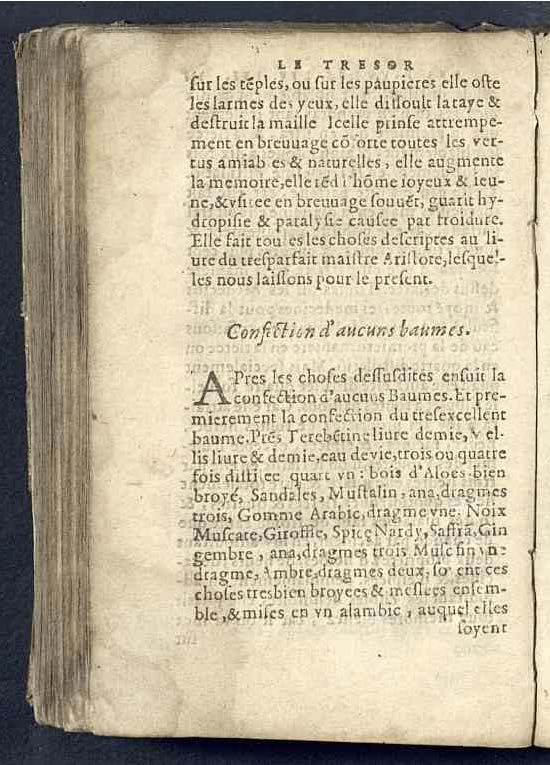 LE TRESOR
sur les tẽples, ou sur les paupieres elle oste
les larmes des yeux, elle dissoult la taye &
destruit la maille Icelle prinse attrempe-
ment en breuuage cõforte toutes les ver-
tus amiab es & naturelles, elle augmente
la memoire, elle rẽd l'hõme ioyeux & ieu-
ne, & vsitee en breuuage souuẽt, guarit hy-
dropisie & paralysie causee par froidure.
Elle fait tou es les choses descriptes au li-
ure du tresparfait maistre Aristote, lesquel-
les nous laissons pour le present.
Confection d'aucuns baumes.
APres les choses dessusdites ensuit la
confection d'aucuns Baumes. Et pre-
mierement la confection du tresexcellent
baume. Prẽs Terebẽtine liure demie, v el-
lis liure & demie, eau de vie, trois ou quatre
fois distilee quart vn: bois d'Aloes bien
broyé, Sandales, Mustalin, ana, dragmes
trois, Gomme Arabic, dragme vne. Noix
Muscate, Giroffle, Spice Nardy, Saffrã, Gin
gembre, ana, dragmes trois Musc fin vne
dragme, Ambre, dragmes deux, so ent ces
choses tresbien broyees & meslees ensem-
ble, & mises en vn alambic, auquel elles
soyent